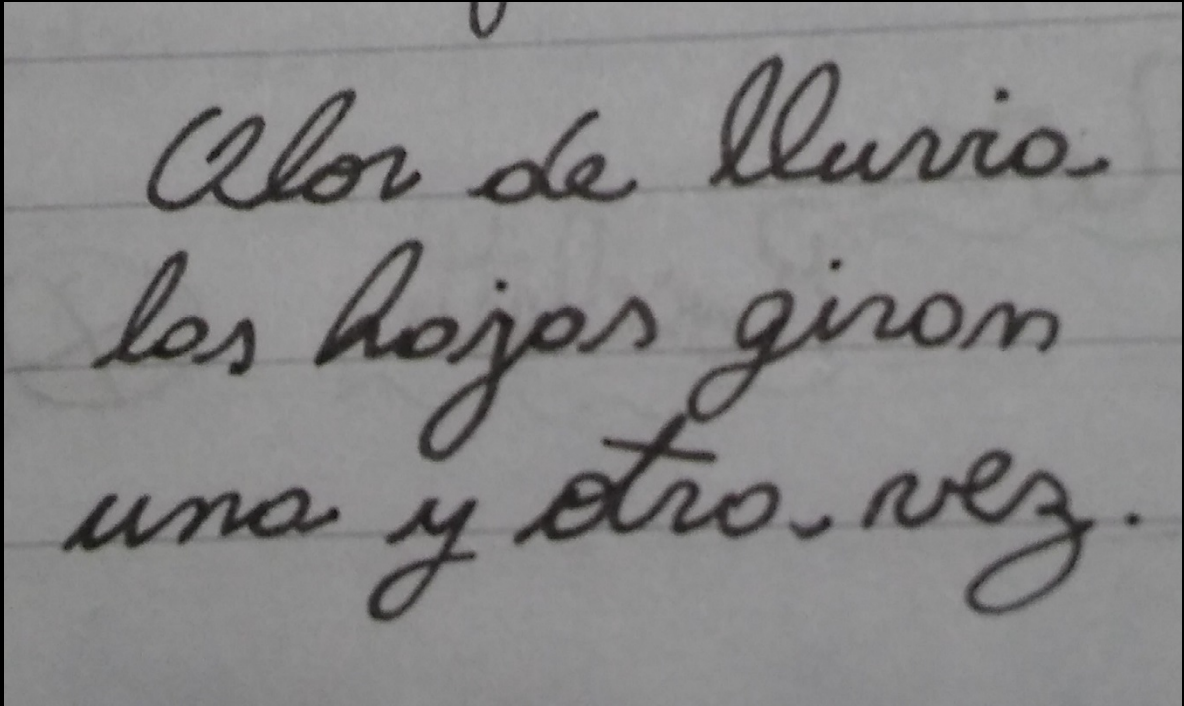 Olor de lluvia
las hojas giran
una y otra vez.